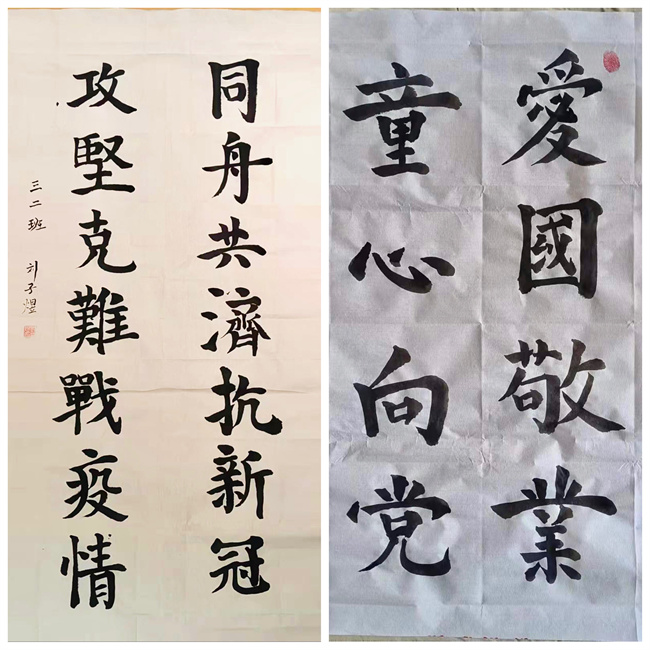 同舟共濟抗新冠
攻堅克難戰疫情
三二班 刘子煜
愛國敬業
童心向党